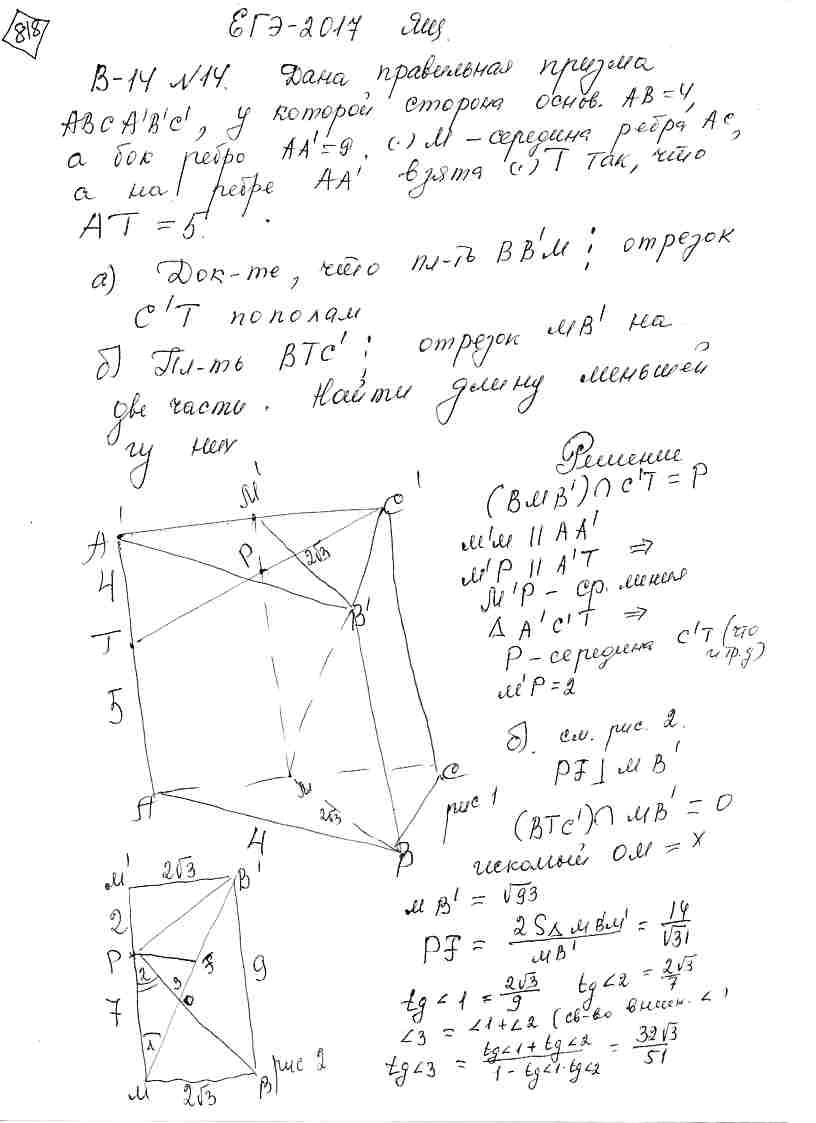 818
ЕГЭ-2017 Ящ.
В-14 №14. Дана правильная призма
ABCA'B'C', у которой сторона основ. AB=4,
а бок ребро AA'=9. (·) M - середина ребра AC,
а на ребре AA' взята (·) T так, что
AT = 5.
а) Док-те, что пл-ть BB'M ⋮ отрезок
C'T пополам
б) Пл-ть BTC' ⋮ отрезок MB' на
две части. Найти длину меньшей
из них
Решение
(BMB')∩C'T = P
M'M ∥ AA'
M'P ∥ A'T ⇒
M'P - ср. линия
Δ A'C'T ⇒
P - середина C'T (что
и тр.д)
M'P=2
б). см. рис. 2.
PF ⊥ MB'
(BTC')∩ MB' = O
искомый OM = x
MB' = √93
PF = 2SΔMB'M' / MB' = 14/√31
tg<1 = 2√3/9 tg<2 = 2√3/7
<3 = <1+<2 (св-во внешн. <)
tg<3 = tg<1+tg<2 / 1-tg<1·tg<2 = 32√3/51
A'
M'
C'
4
P
2√3
T
B'
5
A
M
C
2√3
4
B
рис 1
M'
2√3
B'
2
P
F
2
3
9
7
O
1
M
2√3
B
рис 2